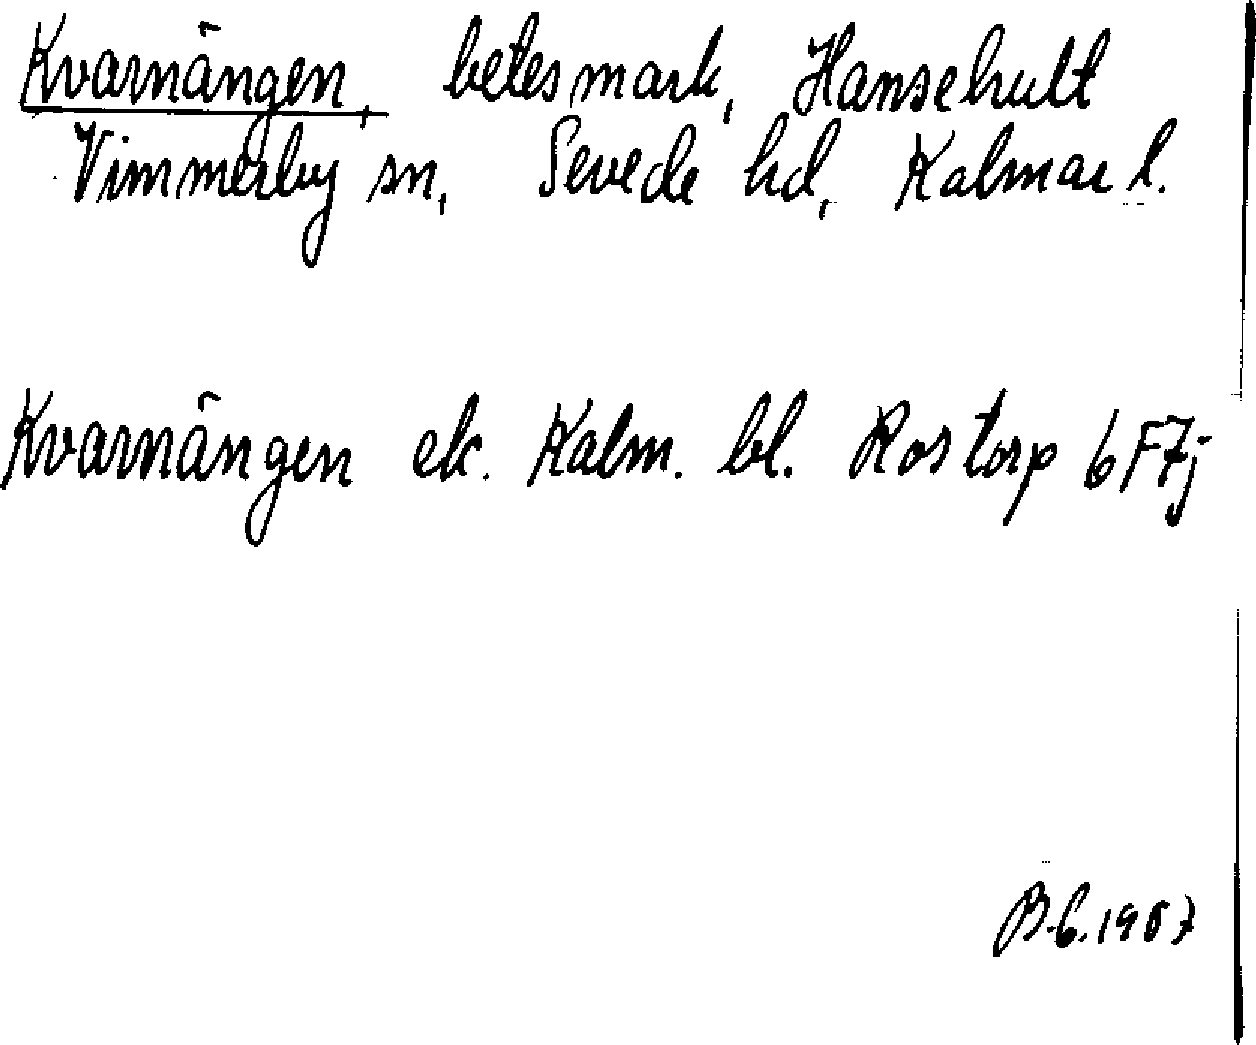 Kvarnängen, betesmark, Hansehult
Vimmerby sn, Sevede hd, Kalmar l.
Kvarnängen ek. Kalm. bl. Rostorp 6F7j
B.G. 1957